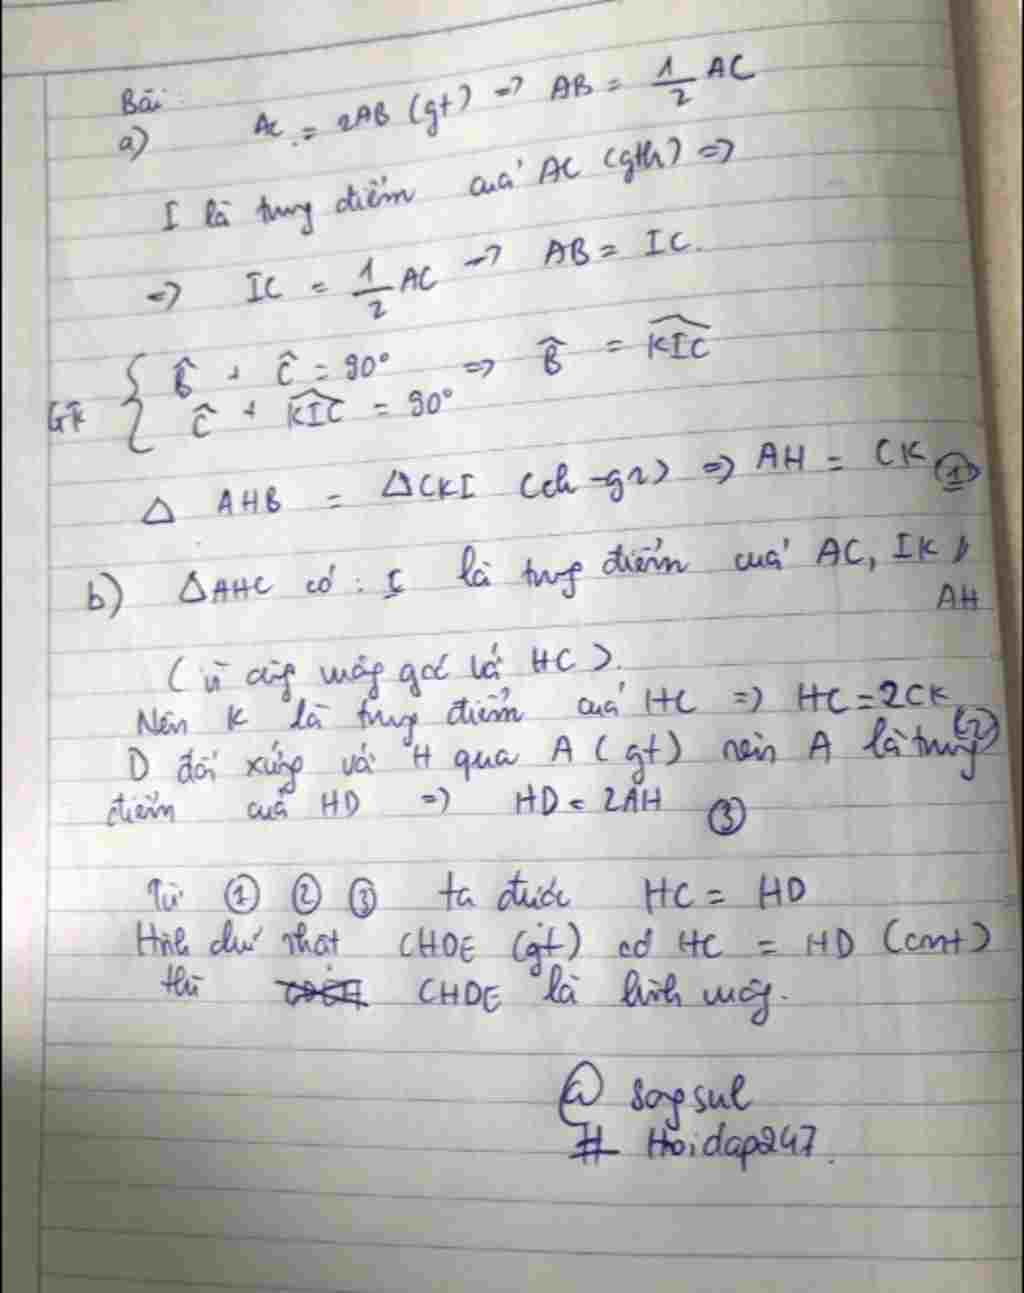 Bài
a) AC = 2AB (gt) => AB = 1/2 AC
I là trung điểm của AC (gth) =>
=> IC = 1/2 AC => AB = IC.
{ B̂ + Ĉ = 90° => B̂ = KIC^
Ĉ + KIC^ = 90°
△ AHB = △CKI (ch-gn) => AH = CK ①
b) △AHC có : I là trung điểm của AC, IK //
AH
(vì cùng vuông góc với HC).
Nên K là trung điểm của HC => HC = 2CK ②
D đối xứng với H qua A (gt) nên A là trung
điểm của HD => HD = 2AH ③
Từ ① ② ③ ta được HC = HD
Hình chữ nhật CHDE (gt) có HC = HD (cmt)
thì CHDE là hình vuông.
# Hoidap247.